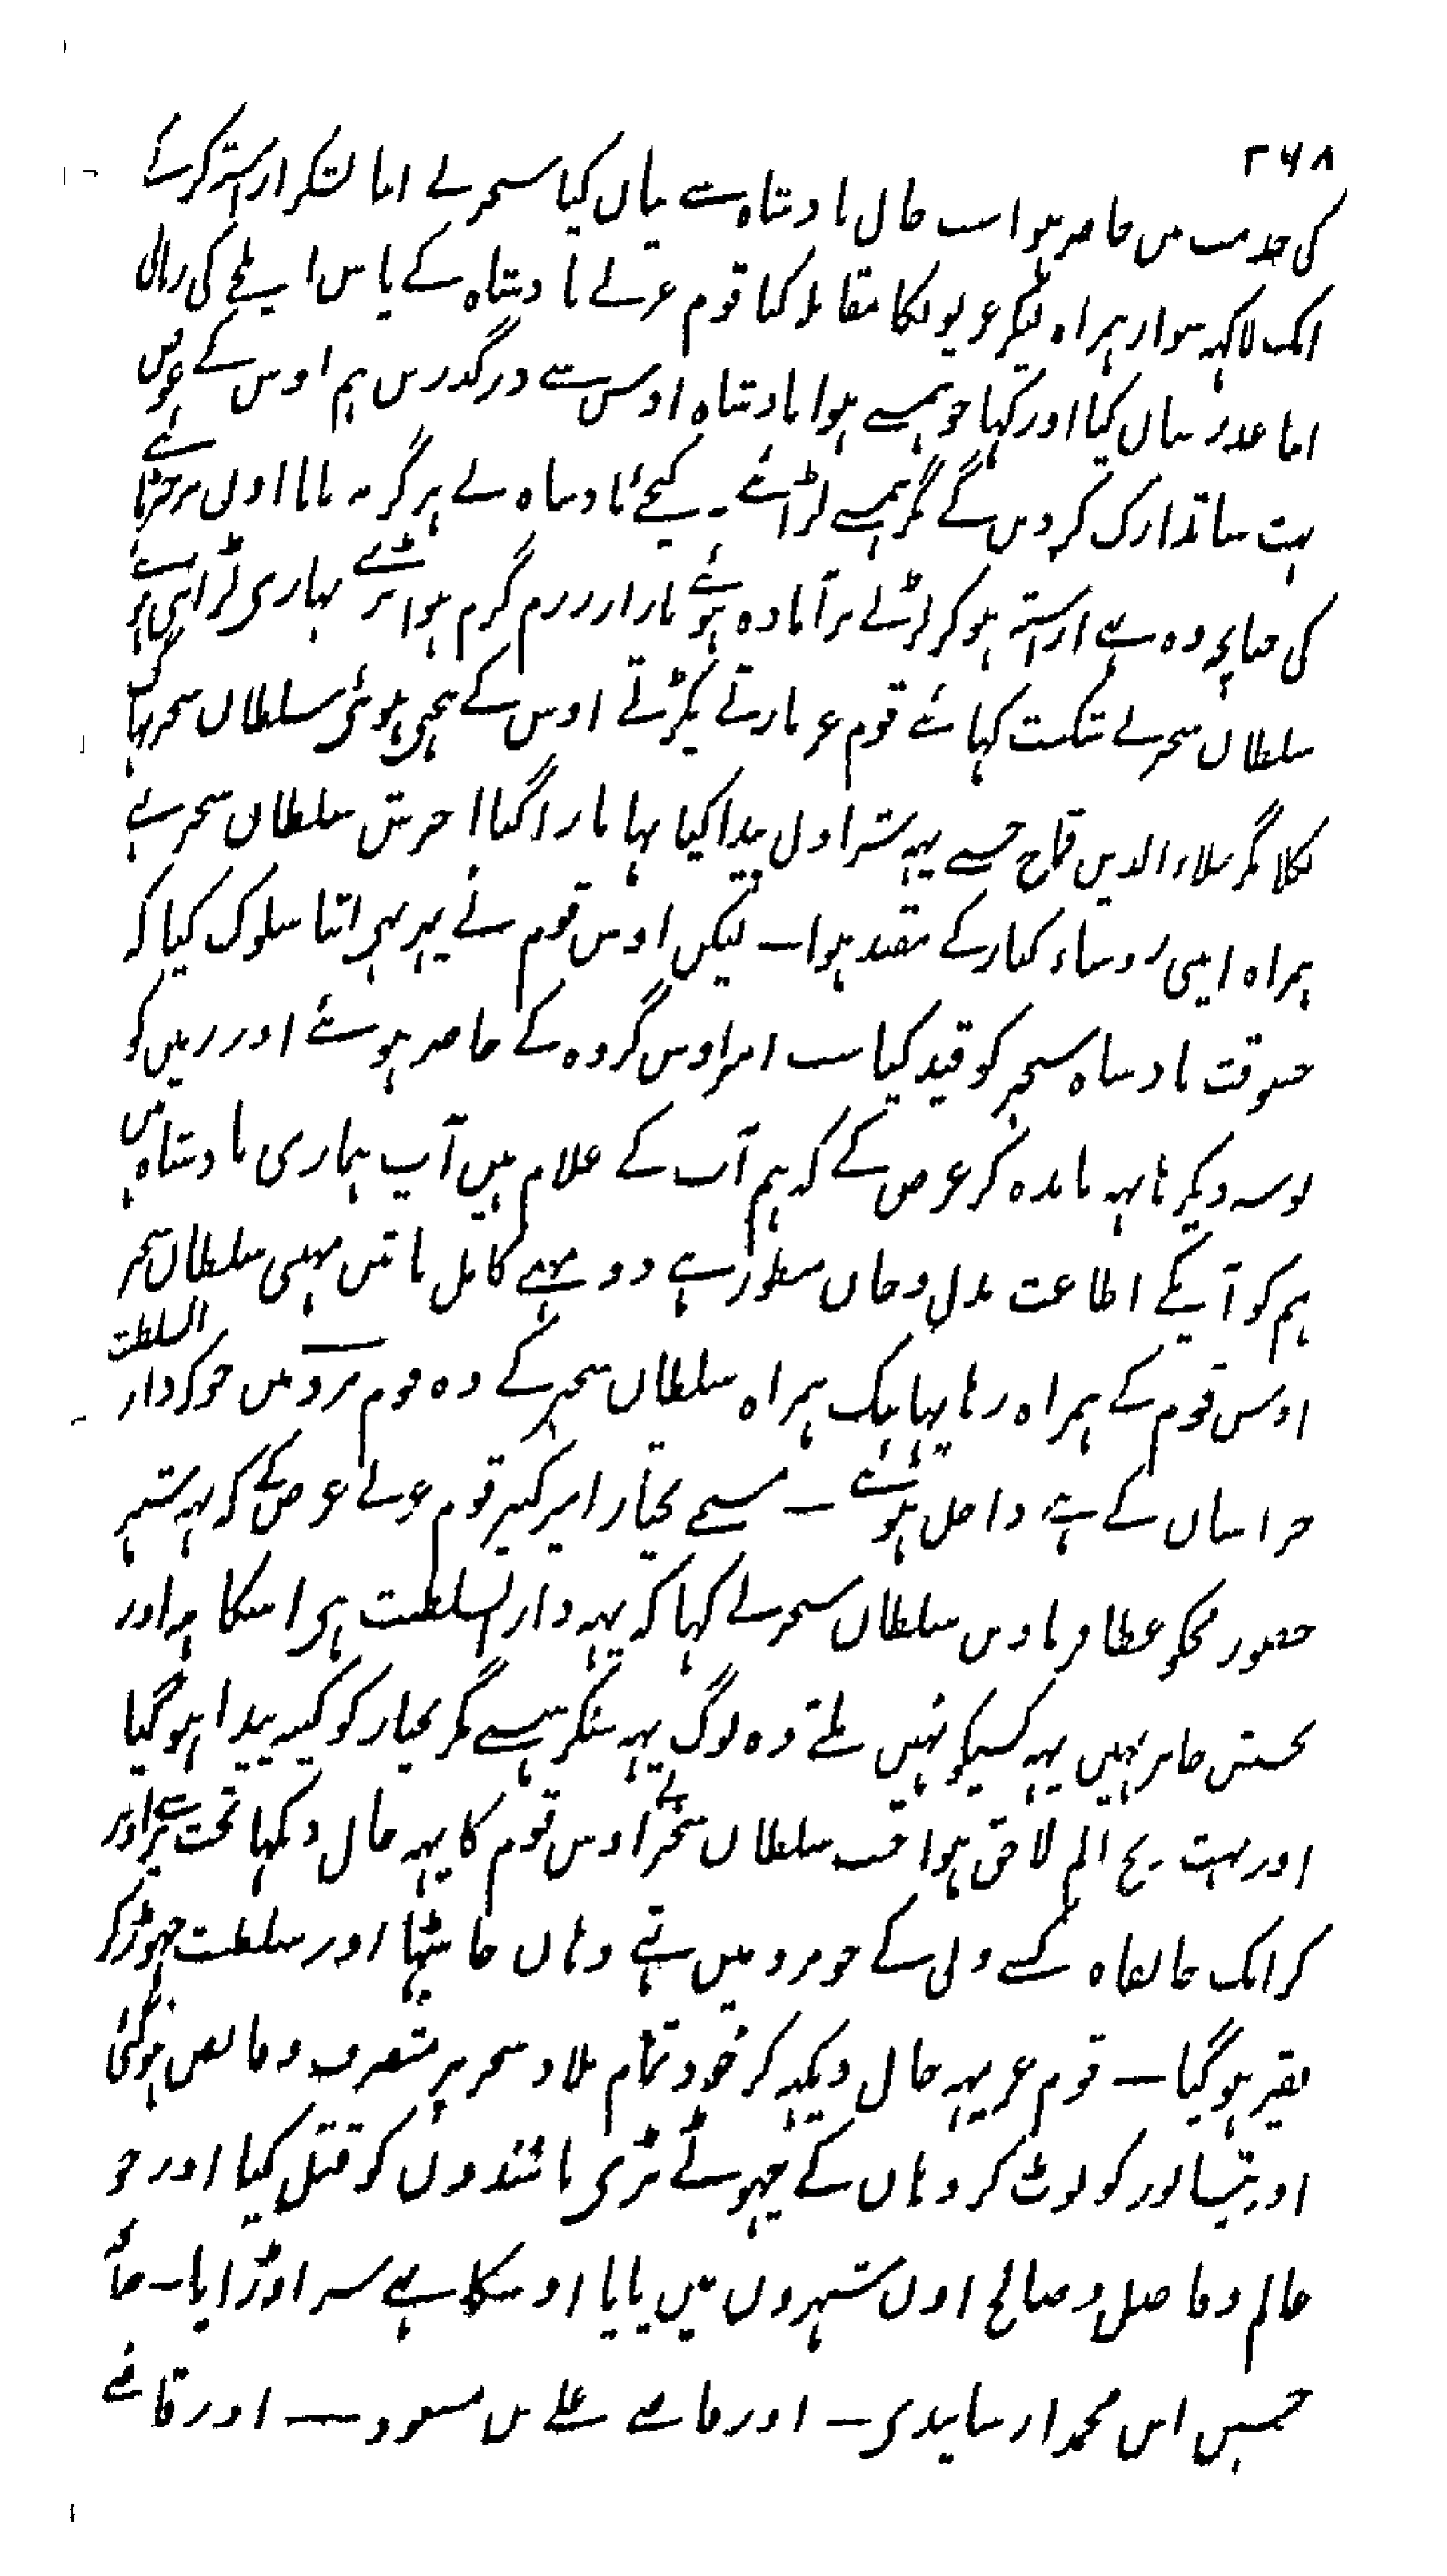 ۲۶۸
کی خدمت میں حاضر ہوا سب حال بادشاہ سے بیان کیا سنجر نے اپنا لشکر اراستہ کرکے
ایک لاکہہ سوار ہمراہ لیکر غزیونکا مقابلہ کیا قوم غزنے بادشاہ کے پاس ایلچے کی زبانی
اپنا عذر بیان کیا اور کہا جو ہمسے ہوا بادشاہ اوس سے درگذریں ہم اوس کے عوض
بہت سا تدارک کردیں گے مگر ہمسے لڑائے نہ کیجئے بادشاہ نے ہرگز نہ مانا اون پر چڑہائے
کی چنانچہ وہ بہے اراستہ ہوکر لڑنے پر آمادہ ہوئے بازار رزم گرم ہوا بڑے بہاری لڑائی ہوئے
سلطان سنجر نے شکست کہائے قوم غز مارتے پکڑتے اوس کے پیچہی ہوئی سلطان سنجر بہاگ
نکلا مگر علاء الدین قماج جسنے یہہ شر اول پیدا کیا تہا مارا گیا اخرش سلطان سنجر بہے
ہمراہ اپنی روساء کبار کے مقید ہوا ـــ لیکن اوس قوم نے پہر بہی اتنا سلوک کیا کہ
جسوقت بادشاہ سنجر کو قید کیا سب امرا اوس گروہ کے حاضر ہوئے اور زمین کو
بوسہ دیکر ہاتہہ باندہ کر عرض کے کہ ہم آپ کے غلام ہیں آپ ہماری بادشاہ ہیں
ہم کو آپکے اطاعت بدل و جان منظور ہے دو مہینے کامل یا تین مہینی سلطان سنجر
اوس قوم کے ہمراہ رہا یہانتک ہمراہ سلطان سنجر کے وہ قوم مرو میں جو کہ دار السلطنت
خراسان کے ہے داخل ہوئے ـــ مسمے بختیار امیر کبیر قوم غزنے عرض کے کہ یہہ شہر
حضور مجکو عطا فرماویں سلطان سنجر نے کہا کہ یہہ دار السلطنت ہی اسکا ہبہ اور
بخشش جایز نہیں یہہ کسیکو نہیں ملتے وہ لوگ یہہ سنکر ہنسے مگر بختیار کو کینہ پیدا ہوگیا
اور بہت رنج الم لاحق ہوا جب سلطان سنجر نے اوس قوم کا یہہ حال دیکہا تخت سے اوتر
کر ایک خانقاہ کسے ولی کے جو مرو میں تہے وہاں جا بیٹہا اور سلطنت چہوڑ کر
فقیر ہوگیا ـــ قوم غز یہہ حال دیکہہ کر خود تمام بلاد سنجر پر متصرف و قابض ہوگئی
اور نیشاپور کو لوٹ کر وہاں کے چہوٹے بڑی باشندوں کو قتل کیا اور جو
عالم و فاضل و صالح اون شہروں میں پایا اوسکا بہے سر اوڑایا ـــ چنانچہ
حسین ابن محمد ارسابندی ـــ اور قاضے علے بن مسعود ـــ اور قاضے